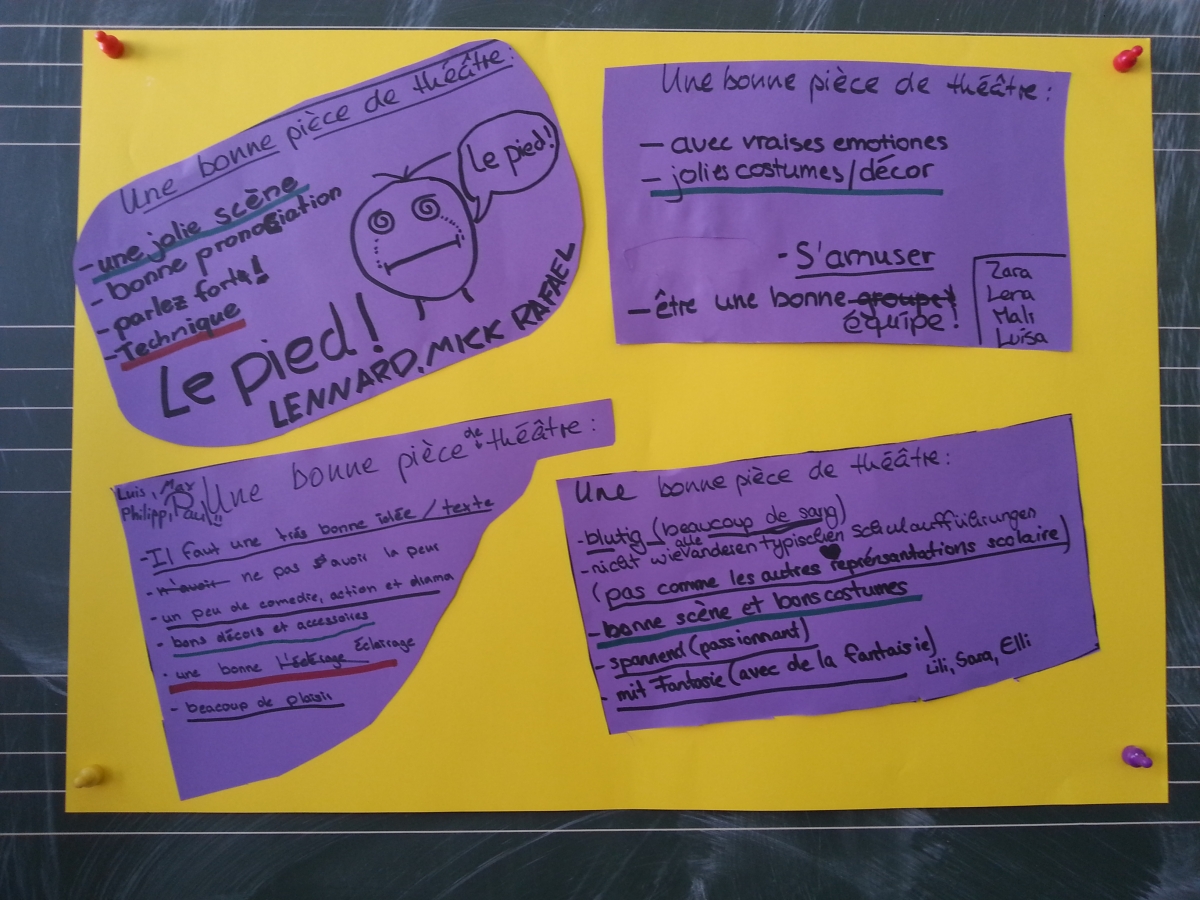 Une bonne pièce de théâtre:
- une jolie scène
- bonne pronociation
- parlez fort!
- Technique
le pied!
Le pied!
LENNARD, MICK RAFAEL
Une bonne pièce de théâtre:
- avec vraises emotiones
- jolies costumes/décor
- S'amuser
- être une bonne groupe!
équipe!
Zara
Lena
Mali
Luisa
Luis, Max
Philipp, Paul!!
Une bonne pièce de théâtre:
- Il faut une trés bonne idée / texte
- n'avoir ne pas avoir la peur
- un peu de comedie, action et drama
- bons décors et accessoires
- une bonne l'éclairage Éclairage
- beaucoup de plaisir
Une bonne pièce de théâtre:
- blutig (beaucoup de sang)
- nicht wie alle anderen typischen Schulaufführungen
(pas comme les autres reprérsantations scolaire)
- bonne scène et bons costumes
- spannend (passionnant)
- mit Fantasie (avec de la fantaisie)
Lili, Sara, Elli